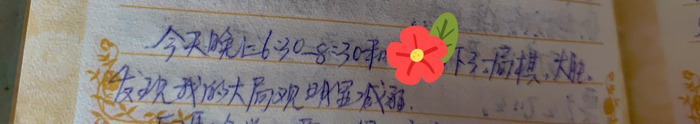 今天晚上6:30-8:30和下了一局棋,大胜。
发现我的大局观明显减弱.